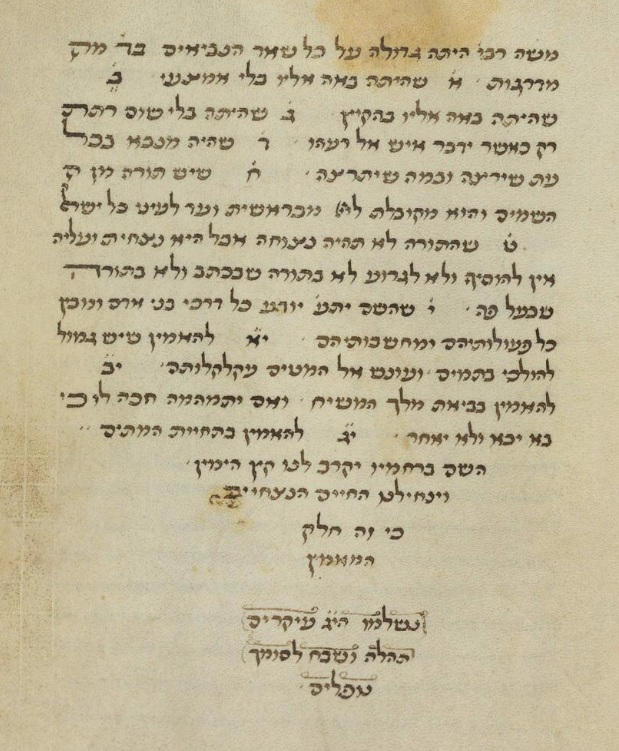 משה רבי׳ היתה גדולה על כל שאר הנביאים בד׳ מק
מדרגות · א׳ שהיתה באה אליו בלי אמצעי ב̇
שהיתה באה אליו בהקיץ ג̇ שהיתה בלי שום רתת
רק כאשר ידבר איש אל רעהו ד̇ שהיה מנבא בכל
עת שירצה ובמה שיתרצה · ח̇ שיש תורה מן
השמים והוא מקובלת מבראשית ועד לעיני כל ישראל
ט̇ שהתורה לא תהיה נצוחה אבל היא נצחית ועליה
אין להוסיף ולא לגרוע לא בתורה שבכתב ולא בתורה
שבעל פה · י̇ שהשם יתע׳ יודע כל דרכי בני אדם ומבין
כל פעולותיהם ומחשבותיהם · י״א להאמין שיש גמול
להולכי בתמים · ועונש אל המטים עקלקלותם · י״ב
להאמין בביאת מלך המשיח · ואם יתמהמה חכה לו כי
בא יבא ולא יאחר · י״ג להאמין בתחיית המתים ··
השם ברחמיו יקרב לנו קץ הימין ·
וינחילנו החיים הנצחיים
כי זה חלק
המאמין
נשלמו הי״ג עיקרים
תהלה ושבח לסומך
נופלים ·